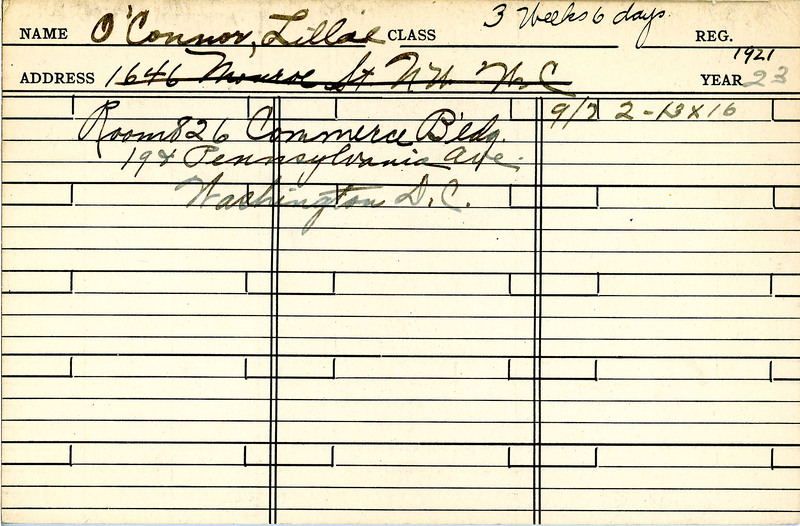 NAME O'Connor, Lillae CLASS 3 Weeks 6 days. REG.
1921
ADDRESS 1646 Monroe St NW W.C YEAR 23
9/7 2-13x16
Room 826 Commerce B'ldg.
19th Pennsylvania Ave.
Washington D.C.